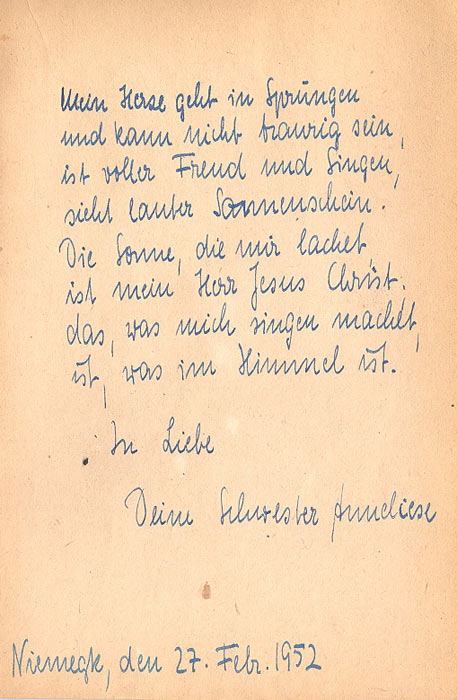 Mein Herze geht in Sprüngen
und kann nicht traurig sein,
ist voller Freud und Singen,
sieht lauter Sonnenschein.
Die Sonne, die mir lachet,
ist mein Herr Jesus Christ.
das, was mich singen machet,
ist, was im Himmel ist.
In Liebe
Deine Schwester Anneliese
Niemegk, den 27. Febr. 1952